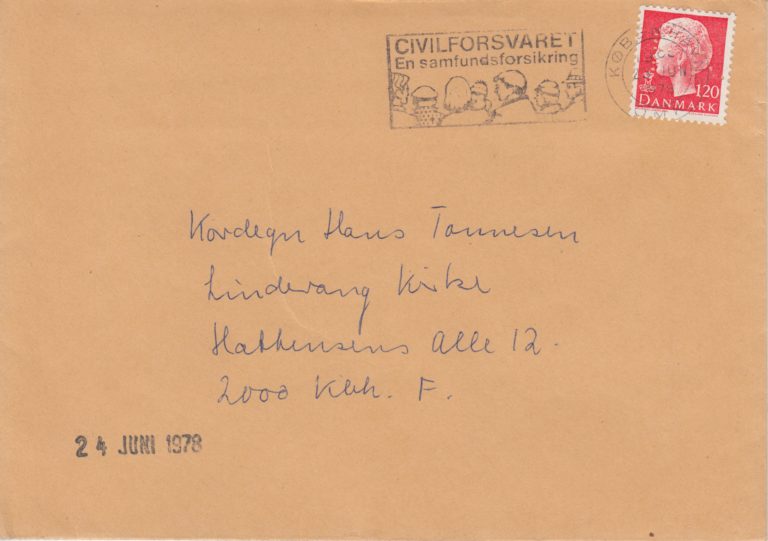 CIVILFORSVARET
En samfundsforsikring
KØB
120
DANMARK
Kordegn Hans Tonnesen
Lindevang Kirke
Hattensens Alle 12.
2000 Kbh. F.
24 JUNI 1978